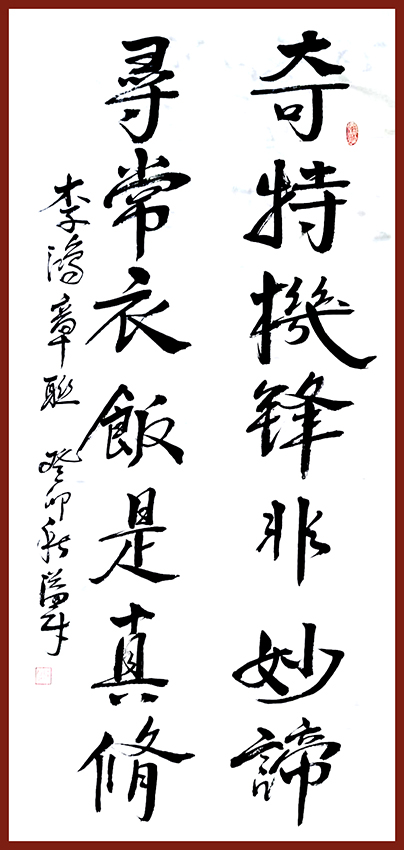 奇特機锋非妙諦
尋常衣飯是真脩
李鴻章联 癸卯秋溢